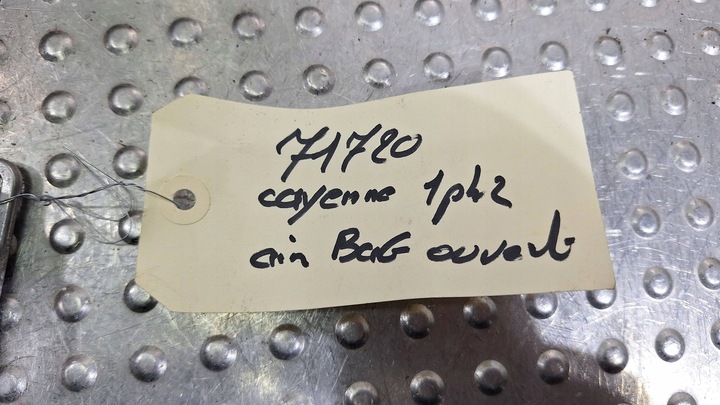 71720
cayenne 1 ph2
air BaG ouvert